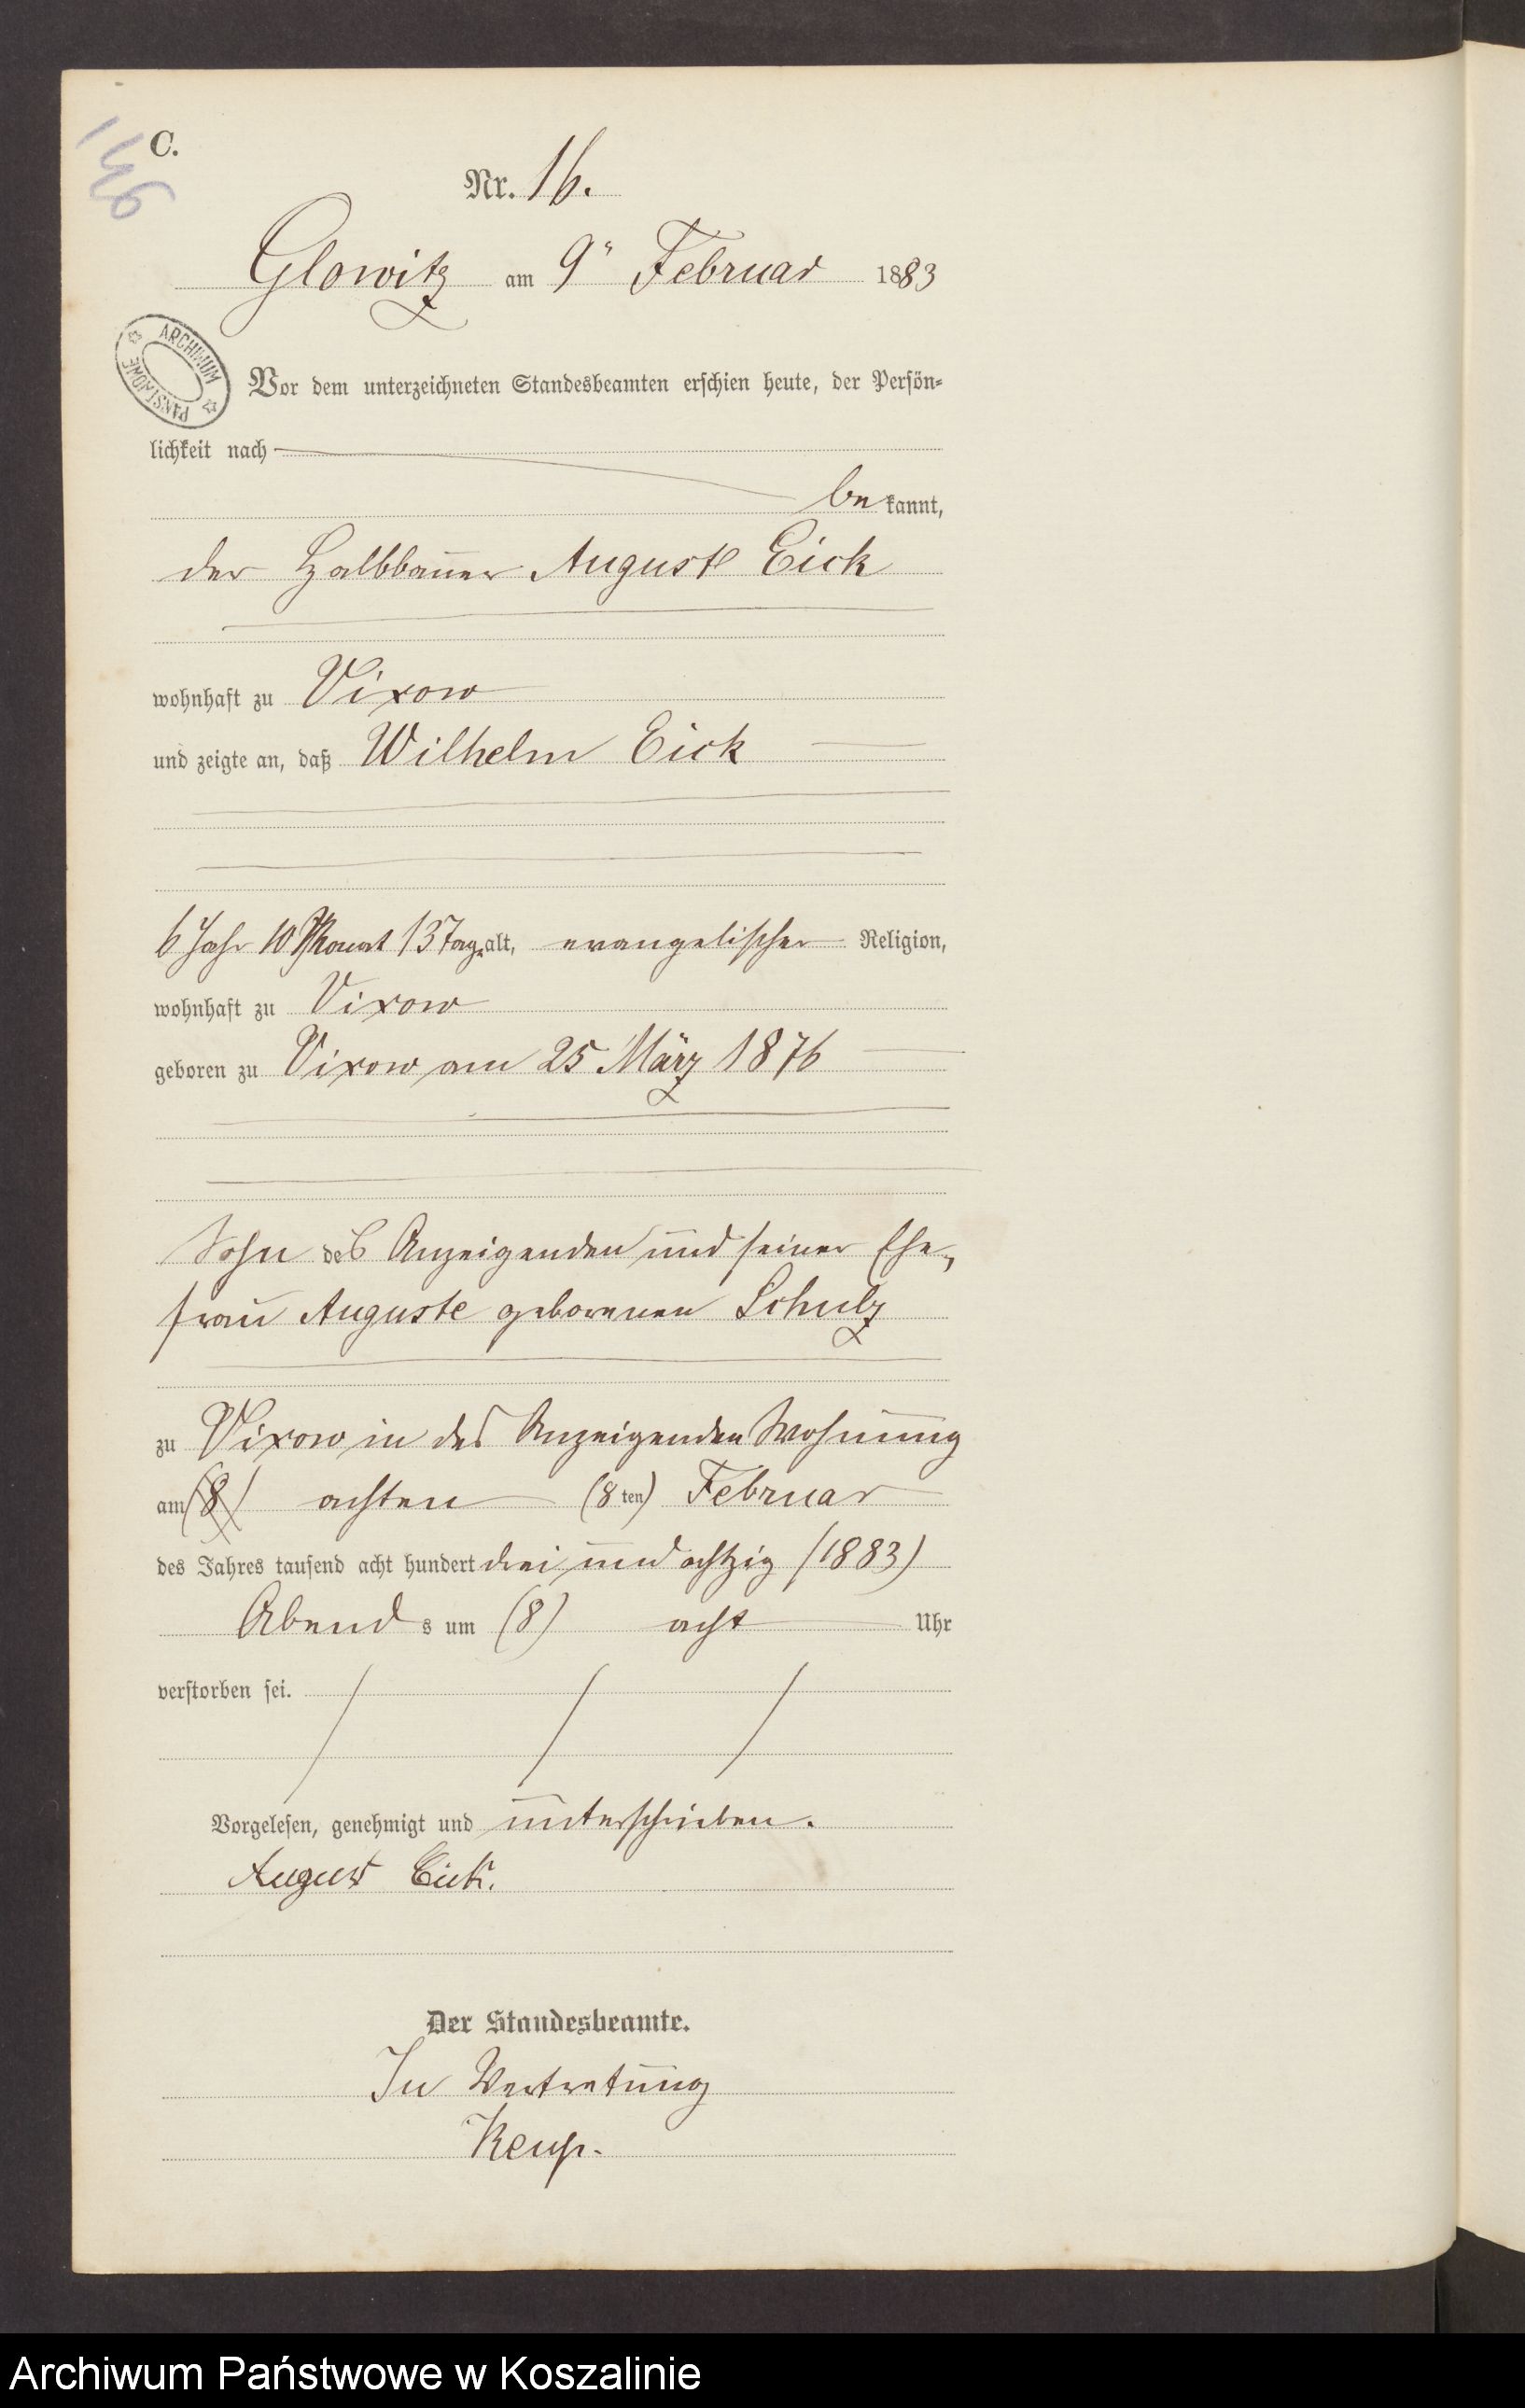 146
C.
Nr. 16.
Glowitz am 9ᵗᵉⁿ Februar 1883
ARCHIWUM PAŃSTWOWE
Vor dem unterzeichneten Standesbeamten erschien heute, der Persön-
lichkeit nach
bekannt,
der Halbbauer August Eick
wohnhaft zu Vixow
und zeigte an, daß Wilhelm Eick
6 Jahr 10 Monat 13 Tage alt, evangelischer Religion,
wohnhaft zu Vixow
geboren zu Vixow am 25 März 1876
Sohn des Anzeigenden und seiner Ehe-
frau Auguste geborenen Schulz
zu Vixow in des Anzeigenden Wohnung
am (8) achten (8ten) Februar
des Jahres tausend acht hundert drei und achtzig (1883)
Abends um (8) acht Uhr
verstorben sei.
Vorgelesen, genehmigt und unterschrieben.
August Eick.
Der Standesbeamte.
In Vertretung
Archiwum Państwowe w Koszalinie